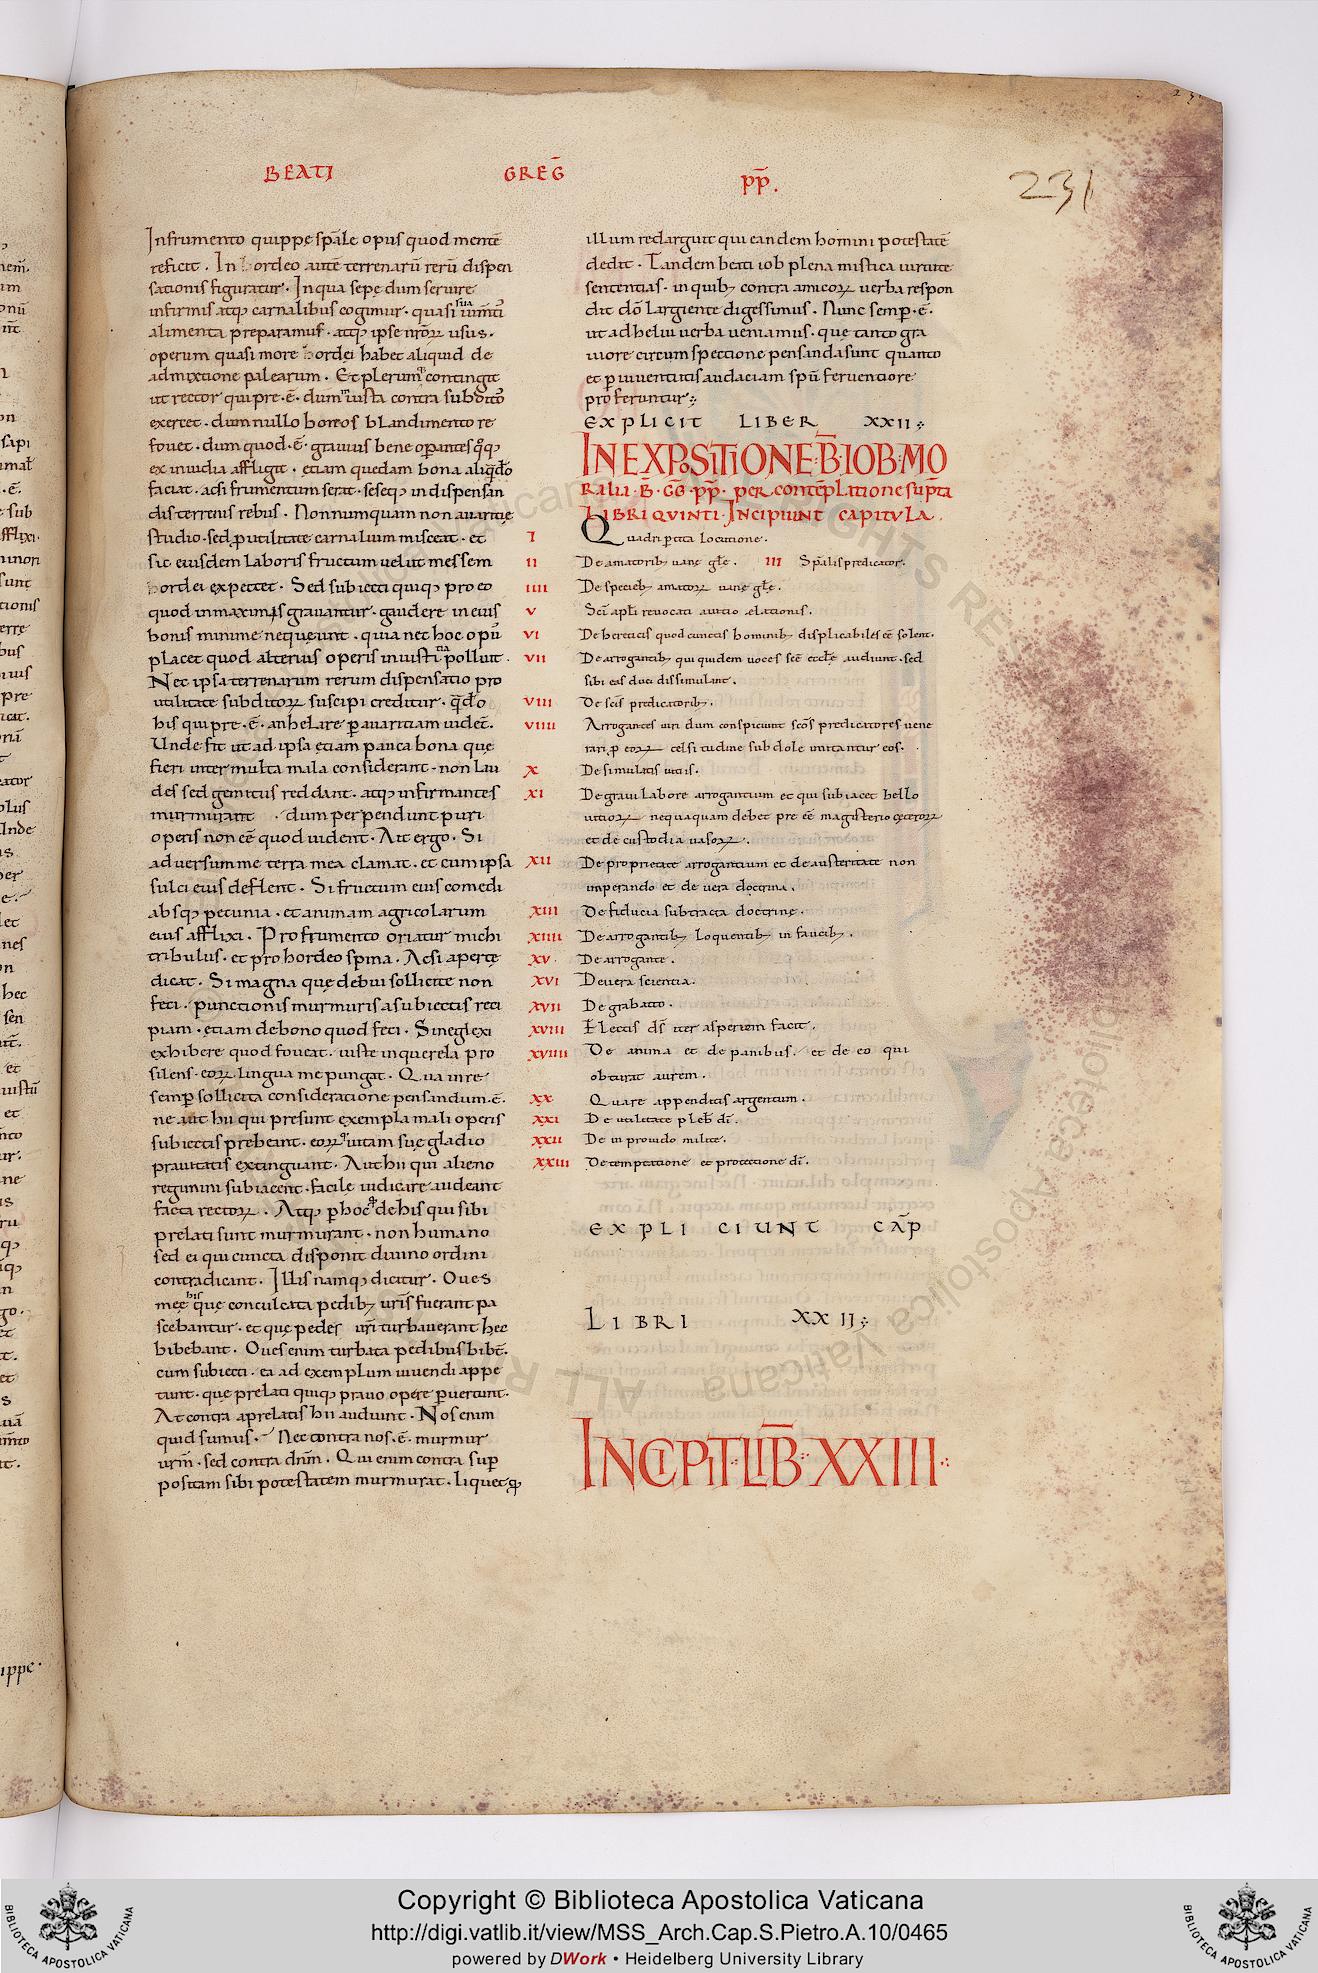 BEATI GREḠ p̄p̄.
231
Infrumento quippę sp̄ale opus quod mentē
reficit . In hordeo autē terrenarū rerū dispen
sationis figuratur . In qua sepe dum seruire
infirmis atq; carnalibus cogimur . quasi sua ium̄ti
alimenta preparamus . atq; ipse nr̄oꝝ usus .
operum quasi more hordei habet aliquid de
admixtione palearum . Et plerumq; contingit
ut rector qui pre . ē . dum iusta contra subditos
exercet . dum nullo hoc eos blandimento re
fouet . dum quod . ē . grauius bene operantes quoq;
ex inuidia affligit . etiam quedam bona aliqdo
faciat . acsi frumentum serat . seseq; in dispensan
dis terrenis rebus . Nonnumquam non auaritię
studio . sed ꝑ utilitate carnalium misceat . et
sic eiusdem laboris fructum uelut messem
hordei expectet . Sed subiecti quiq; pro eo
quod in maximis grauantur . gaudere in eius
bonis minime nequeunt . quia nec hoc opꝰ
placet quod alterius operis iniustitia polluit .
Nec ipsa terrenarum rerum dispensatio pro
utilitate subditoꝝ suscipi creditur . qdo
his qui pre . ē . anhelare ꝑ auaritiam uidet .
Unde fit ut ad ipsa etiam pauca bona que
fieri inter multa mala considerant . non lau
des sed gemitus reddant . atq; infirmantes
murmurant . dum perpendunt puri
operis non eē quod uident . Ait ergo . Si
aduersum me terra mea clamat . et cum ipsa
sulci eius deflent . Si fructum eius comedi
absq; pecunia . et animam agricolarum
eius afflixi . Pro frumento oriatur michi
tribulus . et pro hordeo spina . Acsi aperte
dicat . Si magna quę debui sollicite non
feci . punctionis murmuris a subiectis reci
piam . etiam de bono quod feci . Si neglexi
exhibere quod foueat . iuste in querela pro
silens . eoꝝ lingua me pungat . Qua in re
semꝑ sollicita consideratione pensandum . ē .
ne aut hii qui presunt exempla mali operis
subiectis prebeant . eoꝝq; uitam suę gladio
prauitatis extinguant . Aut hii qui alieno
regimini subiacent . facile iudicare audeant
facta rectoꝝ . Atq; ꝑ hoc qd de his qui sibi
prelati sunt murmurant . non humano
sed ei qui cuncta disponit diuino ordini
contradicant . Illis namq; dicitur . Oues
meę his quę conculcata pedib; uris̄ fuerant pa
scebantur . et quę pedes ur̄i turbauerant hec
bibebant . Oues enim turbata pedibus bibt̄ .
cum subiecti . ea ad exemplum uiuendi appe
tunt . quę prelati quiq; prauo opere ꝑuertunt .
At contra a prelatis hii audiunt . Nos enim
quid sumus . Nec contra nos . ē . murmur
urm̄ . sed contra dn̄m . Qui enim contra suꝑ
positam sibi potestatem murmurat . liquet qđ
illum redarguit qui eandem homini potestatē
dedit . Tandem beati iob plena mistica uirtute
sententias . in quib; contra amicoꝝ uerba respon
dit do largiente digessimus . Nunc semꝑ . ē .
ut ad heliu uerba ueniamus . quę tanto gra
uiore circumspectione pensanda sunt quanto
et ꝑ iuuentutis audaciam spū feruentiore
proferuntur ;
EXPLICIT LIBER XXII ;
IN EXPOSITIONE . B̄ . IOB . MO
RALIA . B̄ . GḠ . P̄P̄ . PER contēplatione sūpta
LIBRI QUINTI . INCIPIUNT CAPITULA .
I Quadriꝑtita locutione .
II De amatorib; uanę glę . III Sp̄alis predicator .
IIII De specieb; amatoꝝ uanę glę .
V Sc̄i apl̄i reuocati a uitio elationis .
VI De hereticis quod cunctis hominib; displicabiles eē solent .
VII De arrogantib; qui quidem uoces scē ecclę audiunt . sed
sibi eas duci dissimulant .
VIII De sc̄is predicatorib; .
VIIII Arrogantes uiri dum conspiciunt scōs predicatores uene
rari ꝓ eoꝝ celsitudine subdole imitantur eos .
X De simulatis uitiis .
XI De graui labore arrogantium et qui subiacet bello
uitioꝝ nequaquam debet pre eē magisterio ceteroꝝ
et de custodia uasoꝝ .
XII De proprietate arrogantium et de austeritate non
imperando et de uera doctrina .
XIII De fiducia subtracta doctrine .
XIIII De arrogantib; loquentib; in faucib; .
XV De arrogante .
XVI De uera scientia .
XVII De grabatto .
XVIII Electis ds̄ iter asperum facit .
XVIIII De anima et de panibus . et de eo qui
obturat aurem .
XX Quare appenditis argentum .
XXI De utilitate pleb̄ dī .
XXII De inprouido milite .
XXIII De temptatione et protectione dī .
EXPLICIUNT CAP̄
LIBRI XXII ;
INCIPIT LIB̄ XXIII
ippe .
Copyright © Biblioteca Apostolica Vaticana
http://digi.vatlib.it/view/MSS_Arch.Cap.S.Pietro.A.10/0465
powered by DWork • Heidelberg University Library
BIBLIOTECA APOSTOLICA VATICANA
BIBLIOTECA APOSTOLICA VATICANA